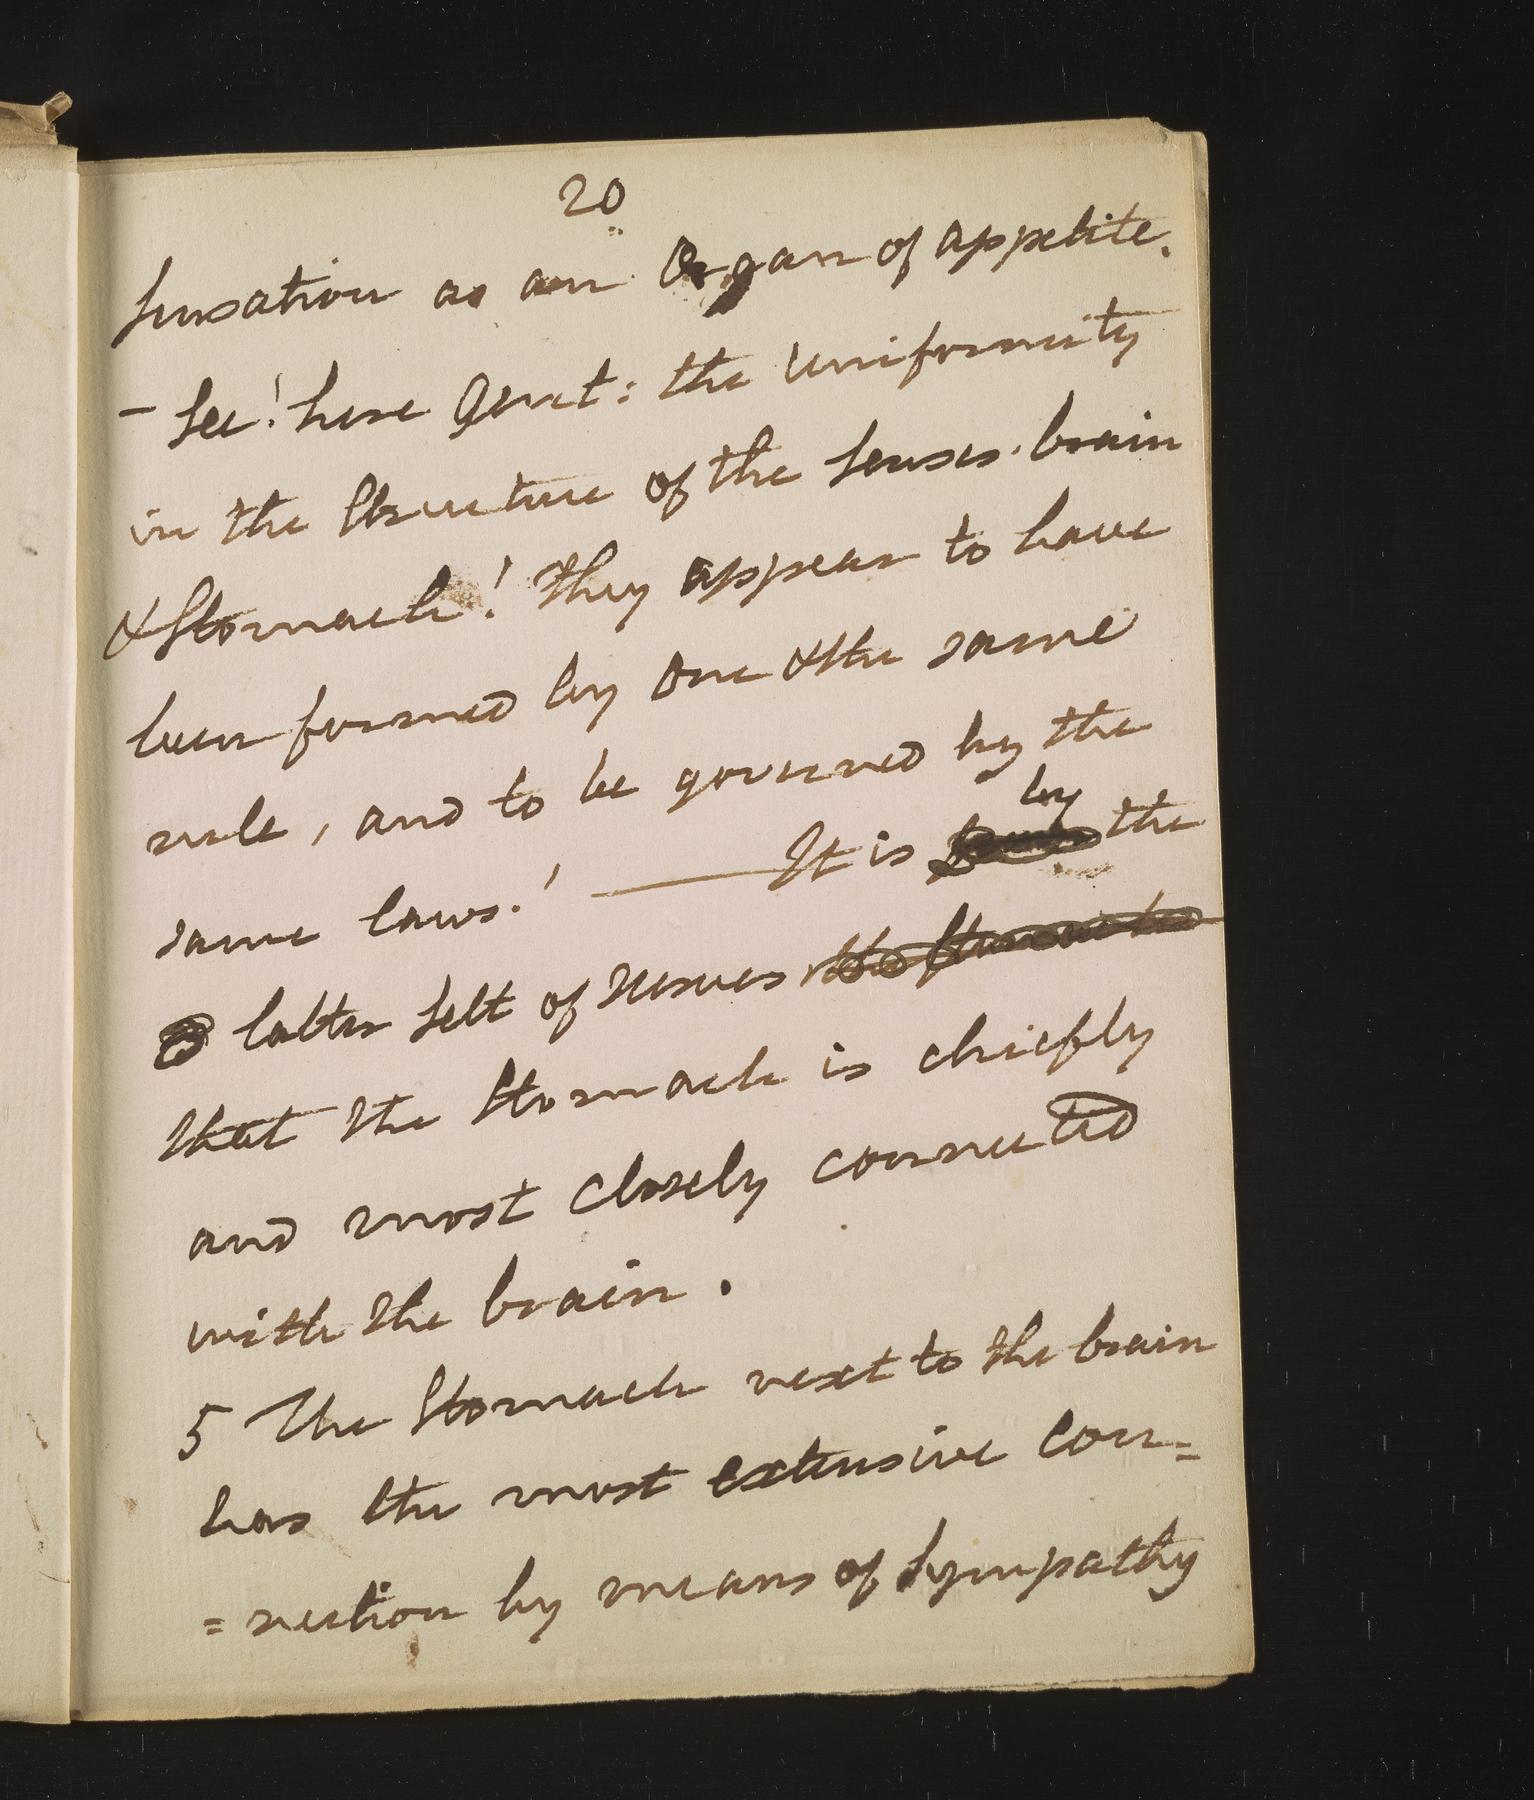 20
sensation as an Organ of appetite.
- See! here Gent: the uniformity
in the structure of the senses. brain
& Stomach! they appear to have
been formed by one & the same
rule, and to be governed by the
by
same laws! — It is the
latter sett of nerves
that the Stomach is chiefly
and most closely connected
with the brain.
5 The Stomach next to the brain
has the most extensive con=
=nection by means of sympathy